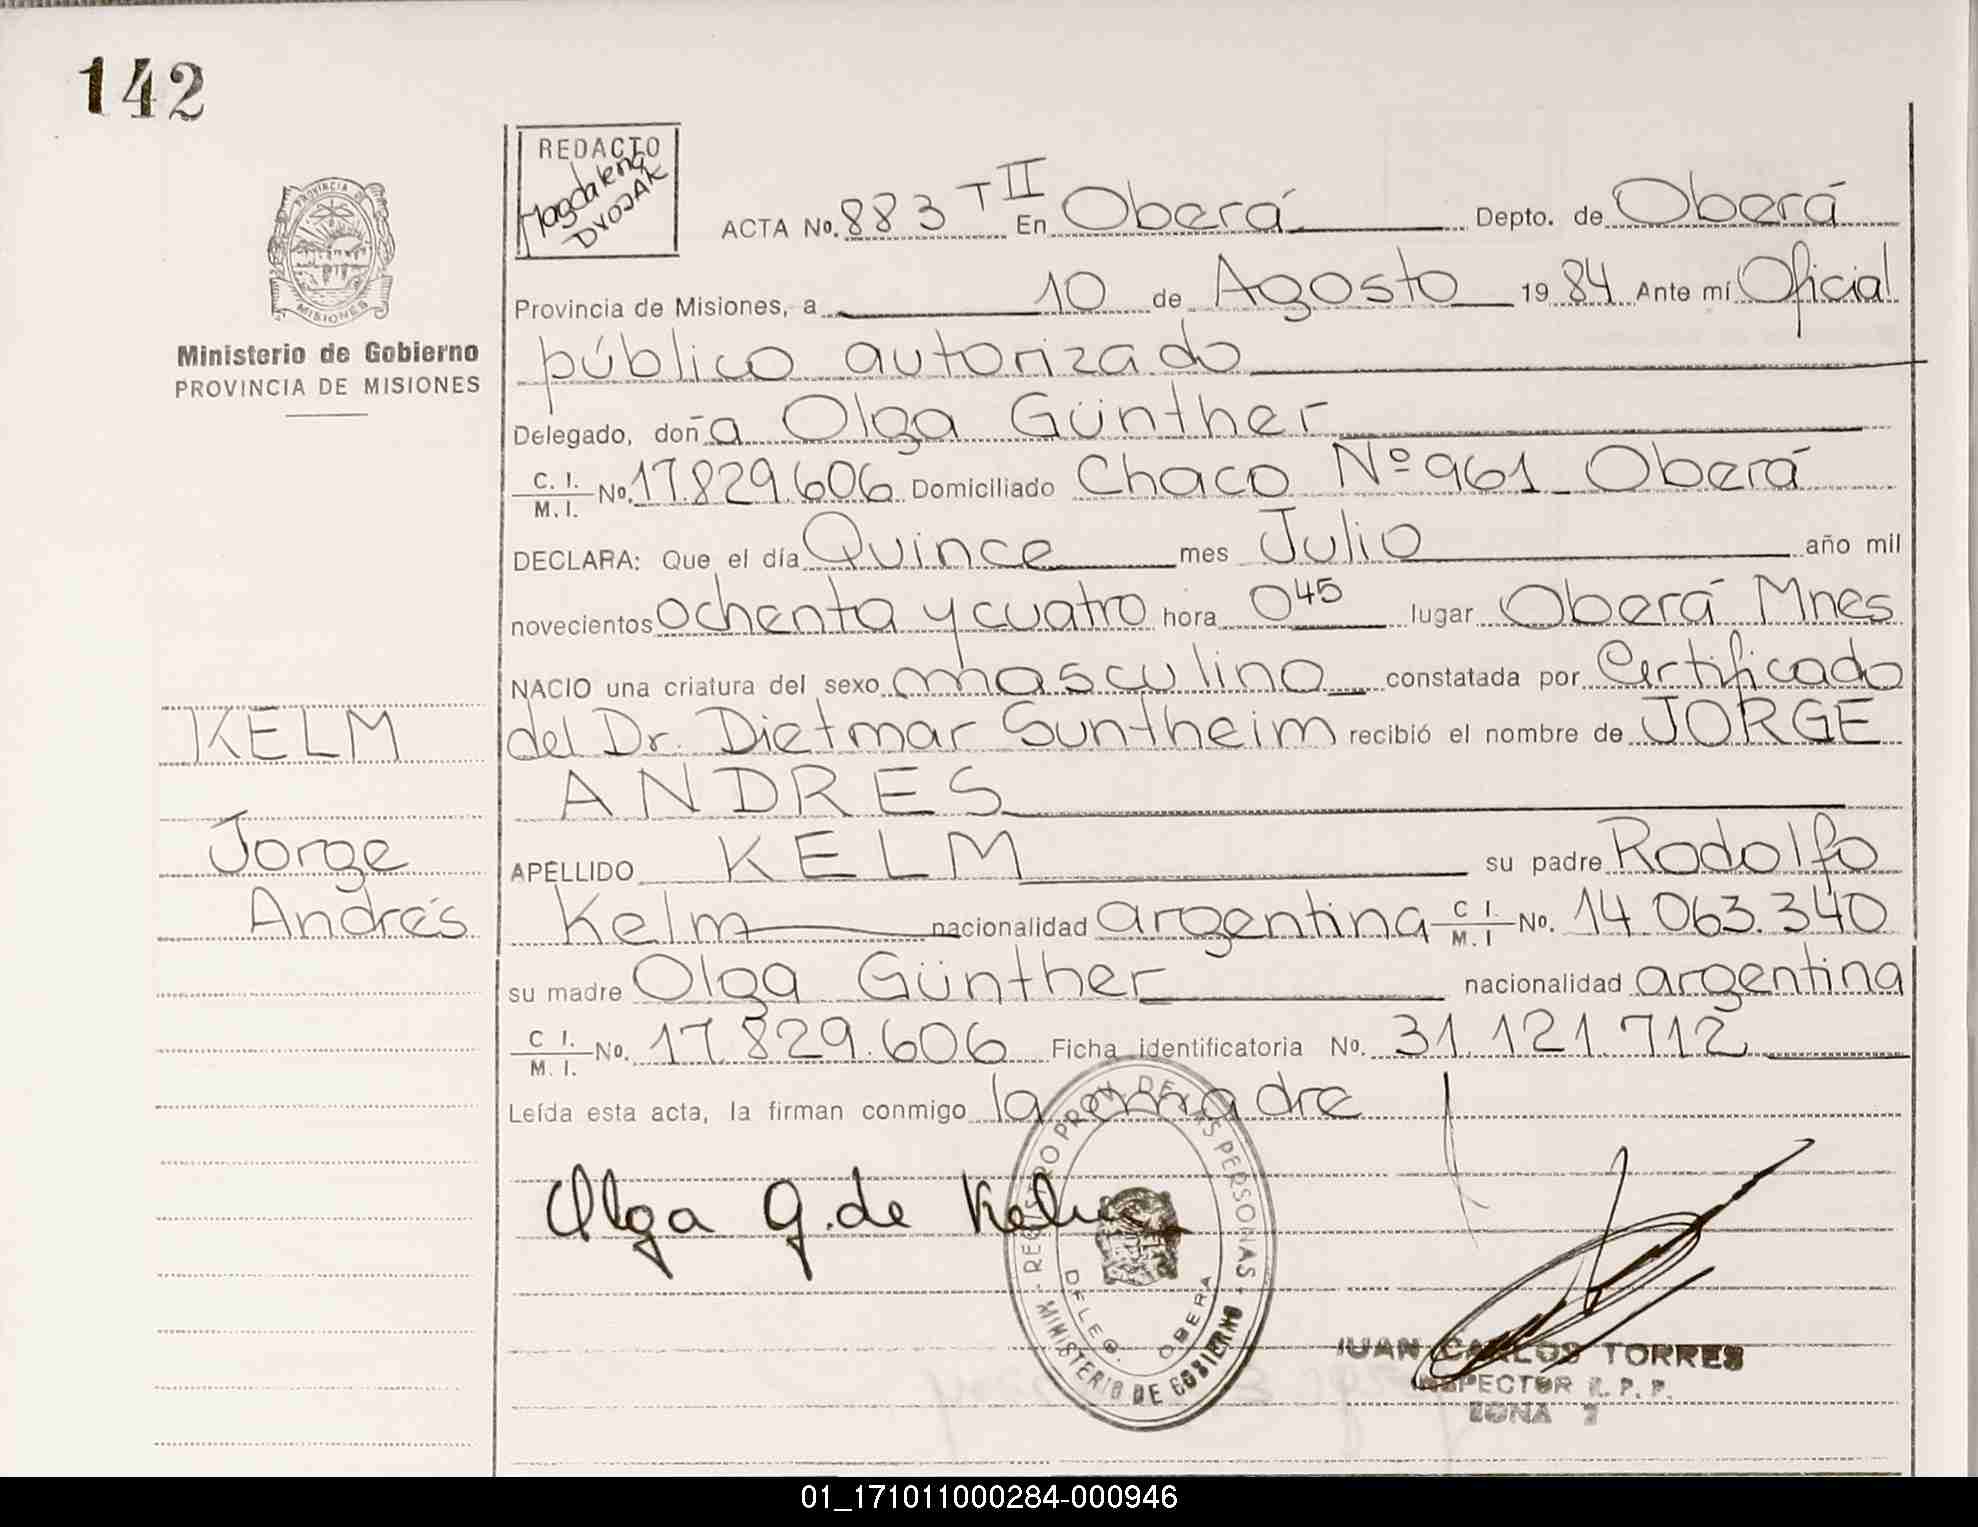 142
REDACTO
Magdalena
DVOJAK
ACTA No. 883 T II En Oberá Depto. de Oberá
Provincia de Misiones, a 10 de Agosto 19 84 Ante mí Oficial
público autorizado
Ministerio de Gobierno
PROVINCIA DE MISIONES
PROVINCIA DE
MISIONES
Delegado, doña Olga Günther
C. I. / M. I. No. 17.829.606 Domiciliado Chaco Nº 961 Oberá
DECLARA: Que el día Quince mes Julio año mil
novecientos ochenta y cuatro hora 0 45 lugar Oberá Mnes
NACIO una criatura del sexo masculino constatada por Certificado
del Dr. Dietmar Suntheim recibió el nombre de JORGE
ANDRES
KELM
Jorge
Andrés
APELLIDO KELM su padre Rodolfo
Kelm nacionalidad argentina C I. / M. I No. 14.063.340
su madre Olga Günther nacionalidad argentina
C I. / M. I. No. 17.829.606 Ficha identificatoria No. 31.121.712
Leída esta acta, la firman conmigo la madre
Olga G. de Kelm
REGISTRO PROV. DE LAS PERSONAS
DELEG. OBERA
MINISTERIO DE GOBIERNO
JUAN CARLOS TORRES
INSPECTOR R. P. P.
ZONA
01_171011000284-000946